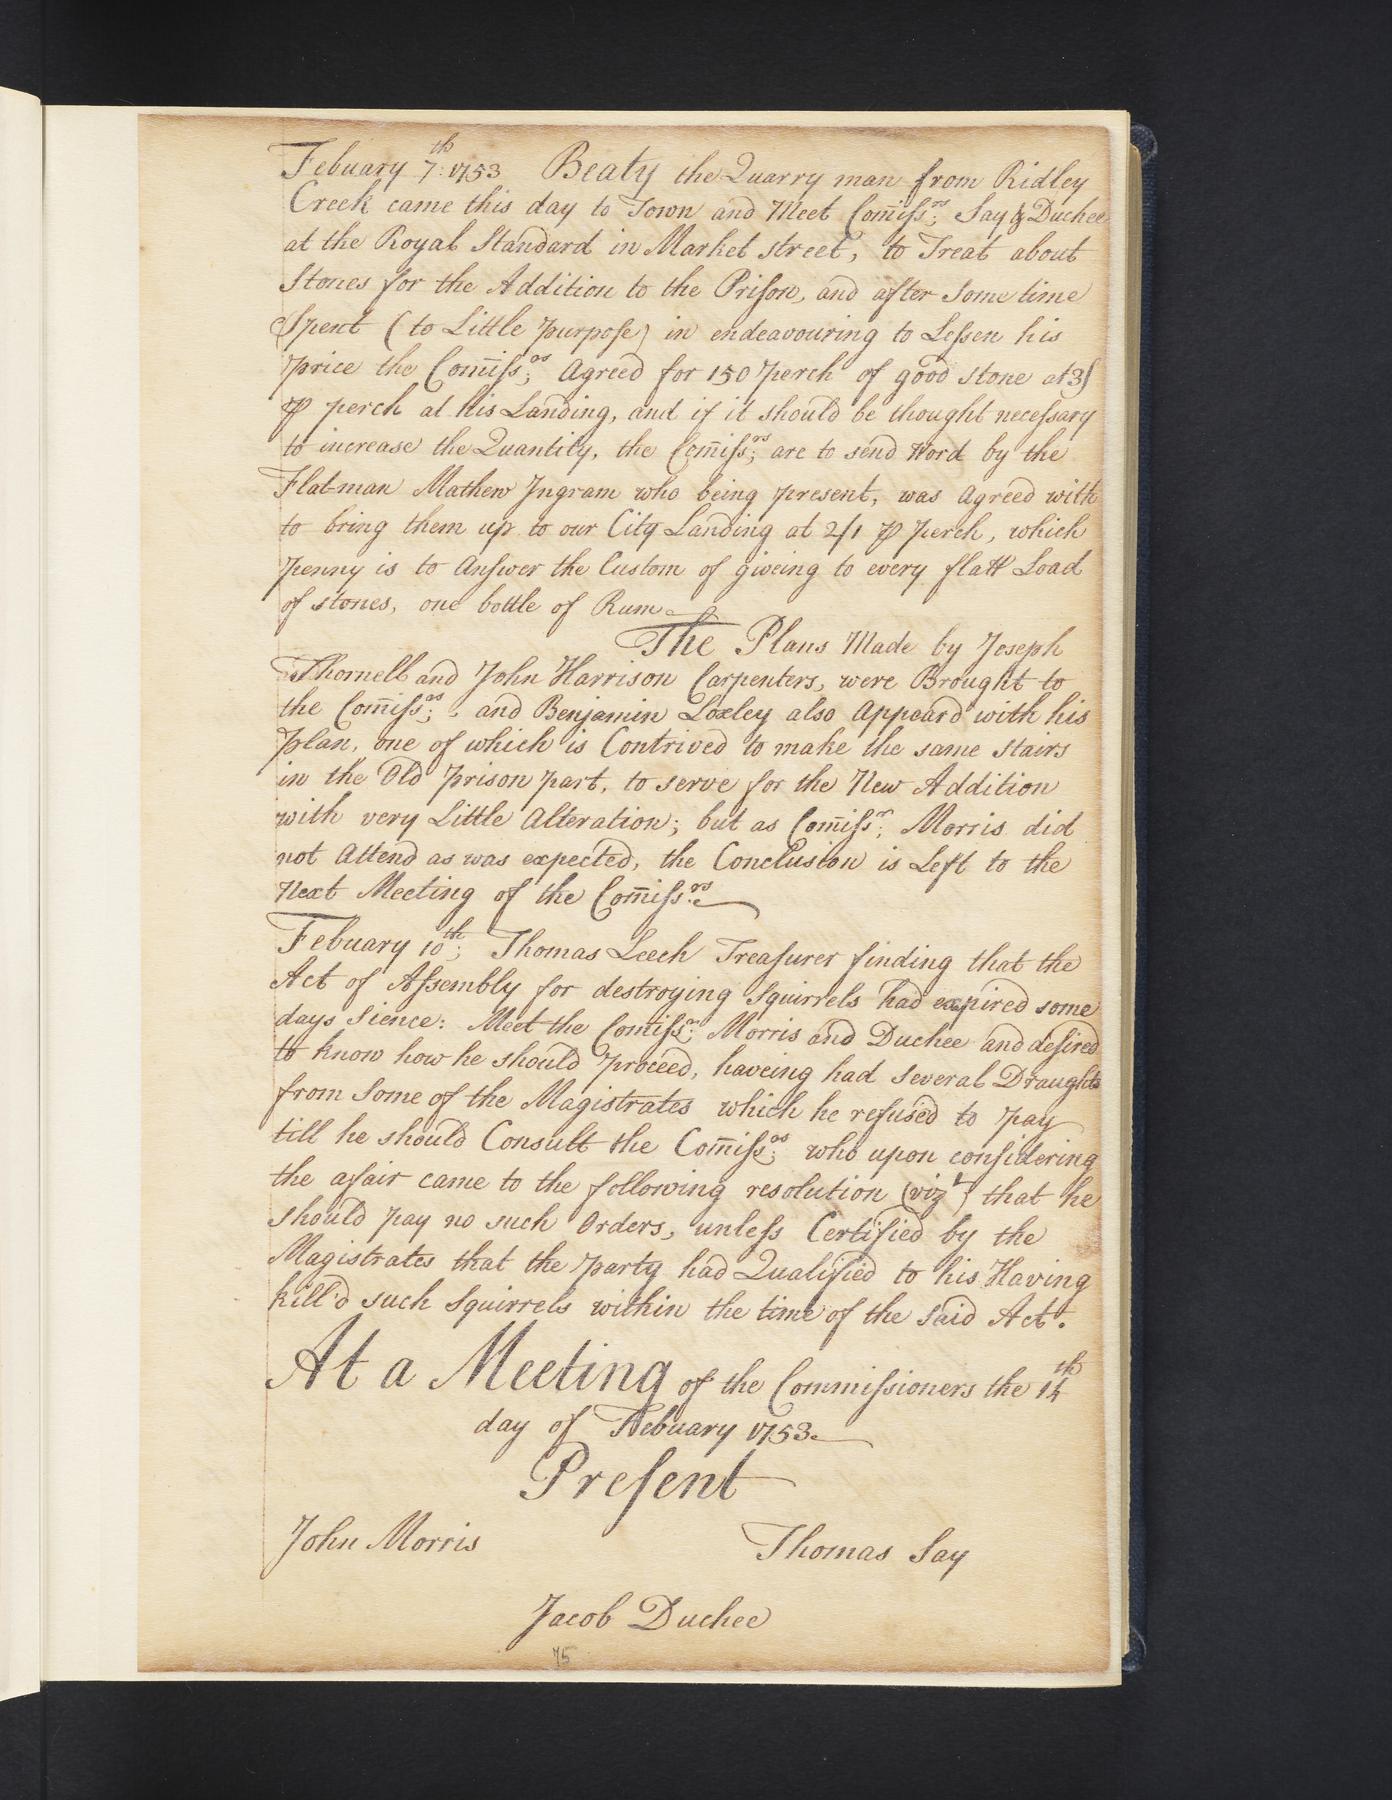 Febuary 7th: 1753 Beaty the Quarry man from Ridley
Creek came this day to Town and Meet Com̄iſsrs; Say & Duchee
at the Royal Standard in Market street, to Treat about
Stones for the Addition to the Priſon, and after Some time
Spent (to Little purpoſe) in endeavouring to Leſsen his
price the Com̄iſsrs; Agreed for 150 Perch of good stone at 3/
⅌ perch at his Landing, and if it should be thought neceſsary
to increase the Quantity, the Com̄iſsrs; are to send Word by the
Flat-man Mathew Ingram who being present, was Agreed with
to bring them up to our City Landing at 2/1 ⅌ Perch, which
Penny is to Anſwer the Custom of giveing to every flatt Load
of stones, one bottle of Rum
The Plans Made by Joseph
Thornell and John Harrison Carpenters, were Brought to
the Com̄iſsrs; and Benjamin Loxley also Appeard with his
Plan, one of which is Contrived to make the same stairs
in the Old prison part, to serve for the New Addition
with very Little Alteration; but as Com̄iſsr; Morris did
not Attend as was expected, the Conclusion is Left to the
Next Meeting of the Com̄iſsrs.
Febuary 10th; Thomas Leech Treaſurer finding that the
Act of Aſsembly for destroying Squirrels had expired some
days Sience: Meet the Com̄iſsrs Morris and Duchee and deſired
to know how he should Proceed, haveing had several Draughts
from Some of the Magistrates which he refused to pay
till he should Consult the Com̄iſsrs; who upon conſidering
the afair came to the following resolution (vizt) that he
should pay no such Orders, unleſs Certified by the
Magistrates that the Party had Qualified to his Having
kill'd such Squirrels within the time of the said Act.
At a Meeting of the Commiſsioners the 14th
day of Febuary 1753.
Preſent
John Morris Thomas Say
Jacob Duchee
75